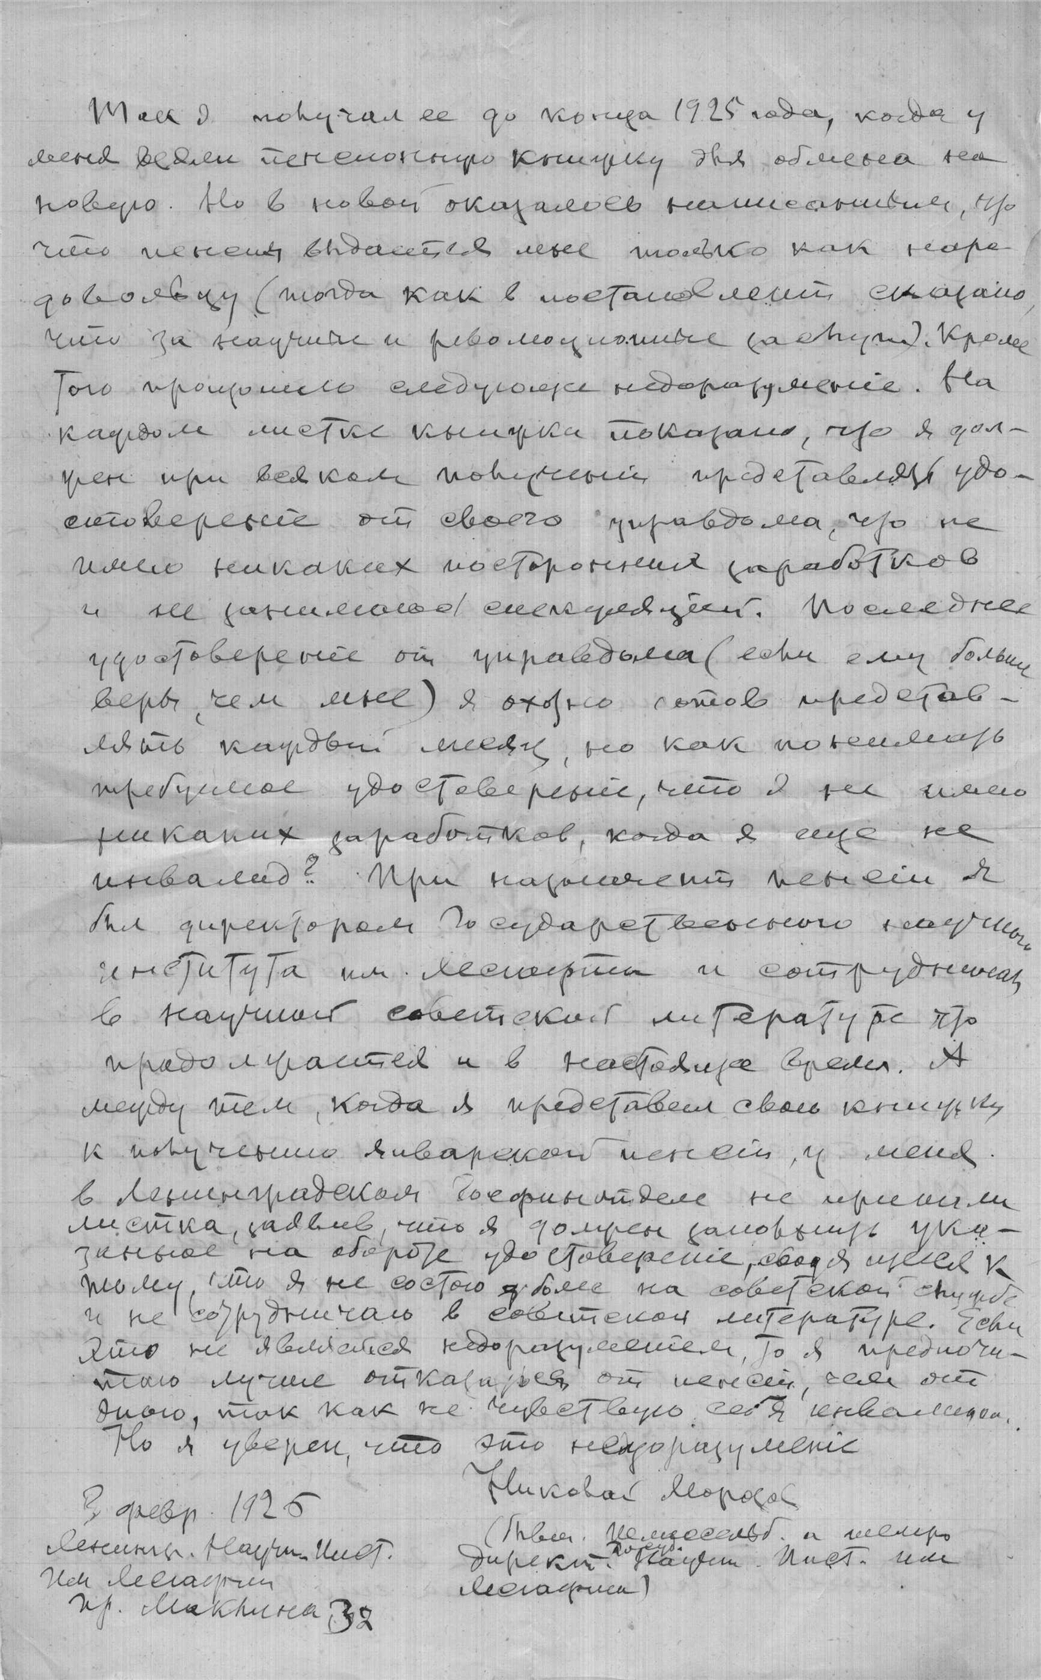 Так я получал ее до конца 1925 года, когда у
меня взяли пенсионную книжку для обмена на
новую. Но в новой оказалось написанным,
что пенсия выдается мне только как наро-
довольцу (тогда как в постановлении сказано,
что за научные и революционные заслуги). Кроме
того произошло следующее недоразумение. На
каждом листке книжки показано, что я дол-
жен при всяком получении представлять удо-
стоверение от своего управдома, что не
имею никаких посторонних заработков
и не занимаюсь спекуляцией. Последнее
удостоверение от управдома (если ему больше
веры, чем мне) я охотно готов представ-
лять каждый месяц, но как понимать
требуемое удостоверение, что я не имею
никаких заработков, когда я еще не
инвалид? При назначении пенсии я
был директором Государственного научного
института им. Лесгафта и сотрудничал
в научной советской литературе что
продолжается и в настоящее время. А
между тем, когда я представил свою книжку
к получению январской пенсии, у меня
в Ленинградском Госфинотделе не приняли
листка, заявив, что я должен заполнить ука-
занное на обороте удостоверение, сводящееся к
тому, что я не состою более на советской службе
и не сотрудничаю в советской литературе. Если
это не является недоразумением, то я предпочи-
таю лучше отказаться от пенсии, чем от
так как не чувствую себя инвалидом.
Но я уверен, что это недоразумение
Николай Морозов
(бывш. шлиссельб. и теперь
директ. Госуд. Научн. Инст. им
Лесгафта)
3 февр. 1926
Ленингр. Научн. Инст.
им Лесгафта
пр. Маклина 32